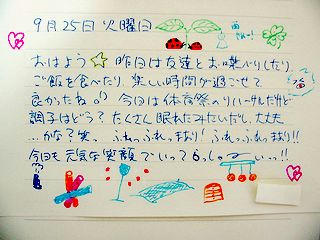 9月25日 火曜日
おはよう☆ 昨日は友達とお喋りしたり、
ご飯を食べたり、楽しい時間が過ごせて
良かったね♪ 今日は体育祭のリハーサルだけど
調子はどう?たくさん眠れたみたいだし、大丈夫
…かな?笑 ふれっふれっまおり!ふれっふれっまおり!!
今日も元気な笑顔でいってらっしゃーいっ!!